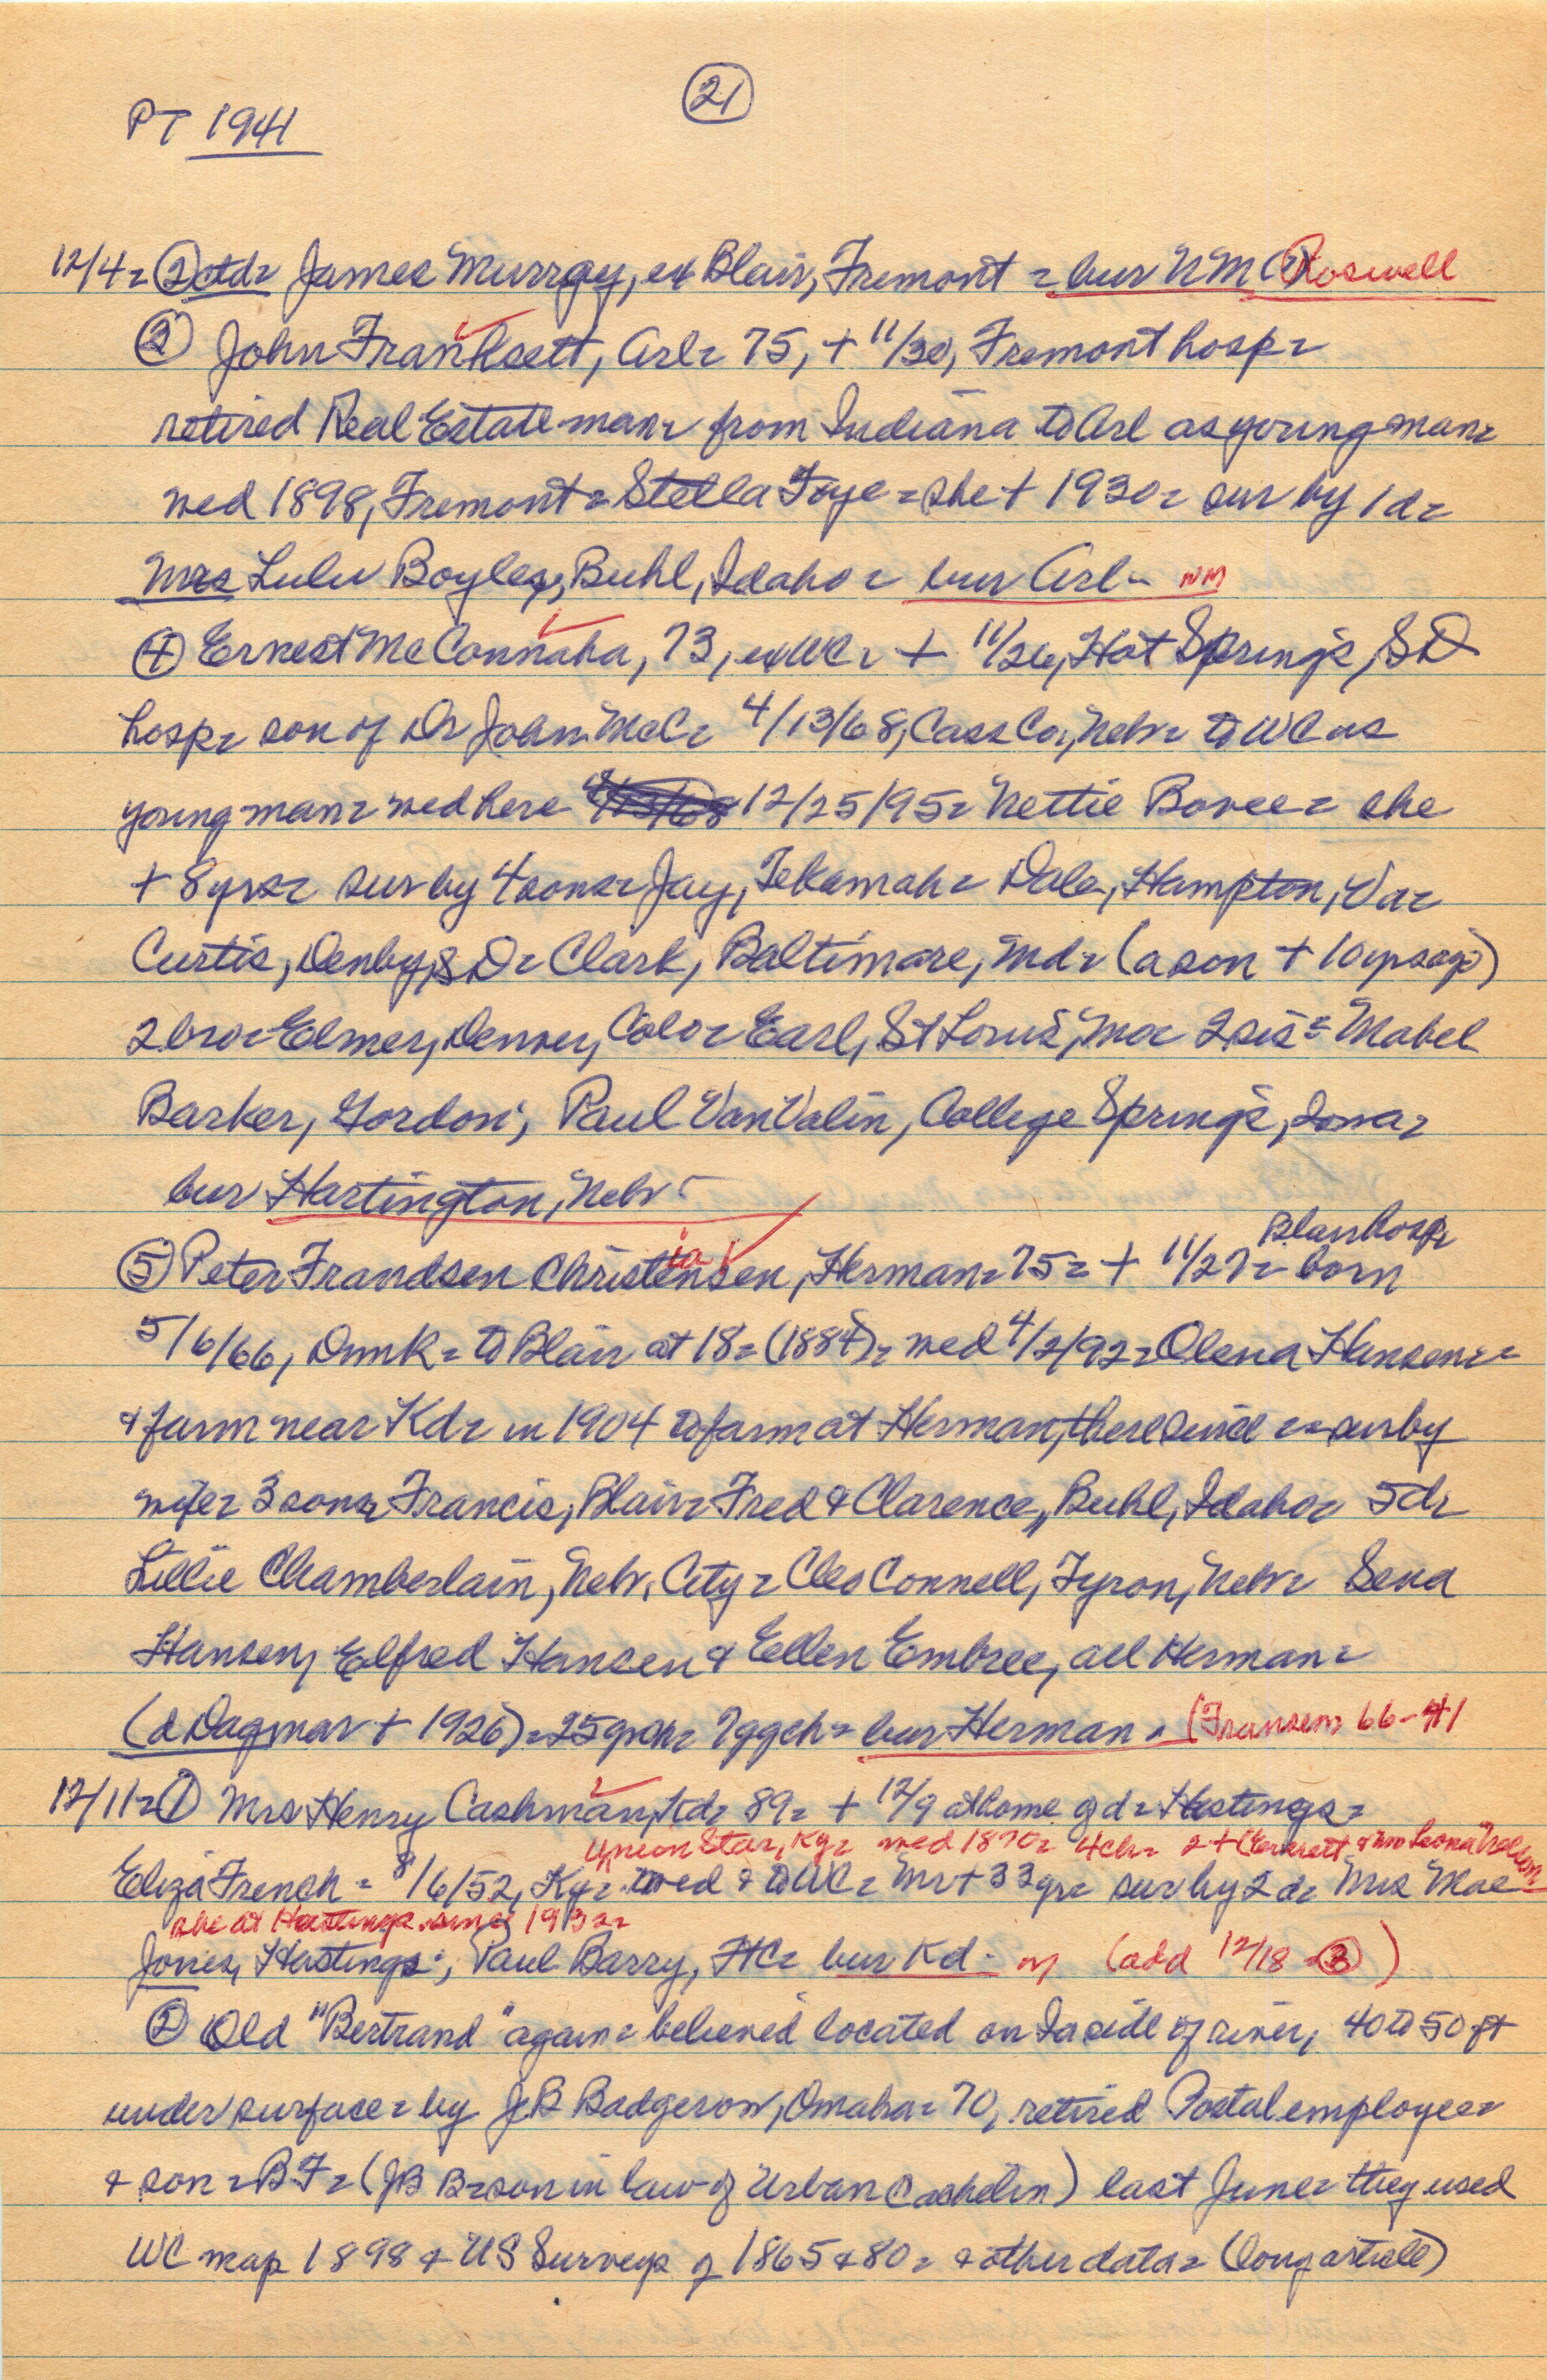 21
PT 1941
12/4 = ② ctd = James Murray, ex Blair, Fremont = bur NM (?) Roswell
③ John Frank, Arl = 75, + 11/30, Fremont hosp =
retired Real Estate man = from Indiana to Arl as young man =
wed 1898, Fremont = Stella Foye = she + 1930 = sur by 1 d =
Mrs Lulu Boyles, Buhl, Idaho = bur Arl - NM
④ Ernest McConnaha, 73, ex WC = + 11/26, Hot Springs, SD
hosp = son of Dr John McC = 4/13/68, Cass Co, Nebr = to WC as
young man = wed here 12/25/95 = Nettie Bovee = she
+ 8 yrs = sur by 4 sons = Jay, Tekamah = Dale, Hampton, Va =
Curtis, Denby, & Dr Clark, Baltimore, Md = (a son + 10 yrs ago)
2 bro = Elmer, Denver, Colo = Earl, St Louis, Mo = 2 sis = Mabel
Barker, Gordon; Paul VanValin, College Springs, Iowa =
bur Hartington, Nebr -
Blair hosp =
⑤ Peter Frandsen Christensen, Herman = 75 = + 11/27 = born
ia
5/6/66, Dnmk = to Blair at 18 = (1884) = wed 4/2/92 = Olena Hansen =
& farm near Kd = in 1904 to farm at Herman, there since = sur by
wife = 3 sons = Francis, Blair = Fred & Clarence, Buhl, Idaho = 5 d =
Lillie Chamberlain, Nebr. City = Cleo Connell, Tyron, Nebr = Sena
Hansen, Elfred Hansen & Ellen Embree, all Herman =
(d Dagmar + 1926) = 25 grch = 7 ggch = bur Herman = (Fransen 66-41
12/11 = ① Mrs Henry Cashman, ctd = 89 = + 12/9 at home of d = Hastings =
Union Star, Ky = wed 1870 = 4 ch = 2 + (Everett & Mrs Leona
Eliza French = 8/6/52, Ky = wed & to WC = Mr + 33 yrs = sur by 2 d = Mrs Mae
she at Hastings since 1932 =
Jones, Hastings; Paul Barry, FtC = bur Kd - (add 12/18 = ③)
② Old "Bertrand" again = believed located on Ia side of river, 40 to 50 ft
under surface = by JB Badgerow, Omaha = 70, retired Postal employee =
& son = BF = (JB B = son in law of Urban Cachelin) last June = they used
WC map 1898 & US Surveys of 1865 & 80 = & other data = (long article)